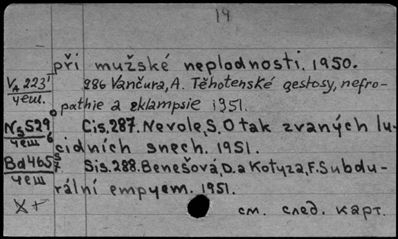 14
při mužské neplodnosti. 1950.
VA 223 286 Vančura, A. Těhotenské gestosy, nefro-
чеш. pathie a eklampsie 1951.
NS 529 Cis. 287. Nevole, S. O tak zvaných lu-
чеш cidních snech. 1951.
Bd 465 Sis. 288. Benešová, D. a Kotyza, F. Subdu-
чеш rální empyem. 1951.
X+ см. след. карт.